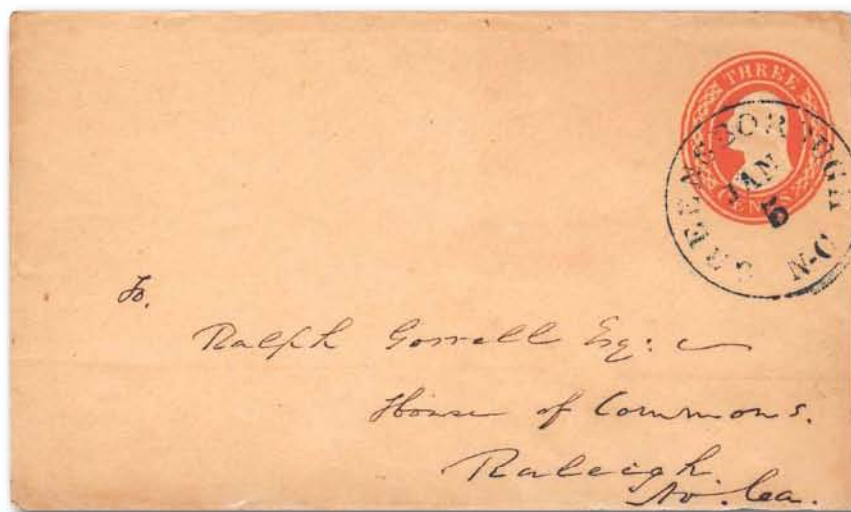 THREE
CENTS
GREENSBOROUGH N.C
JAN
5
To.
Ralph Gorrell Esq:
House of Commons.
Raleigh.
No. Ca.